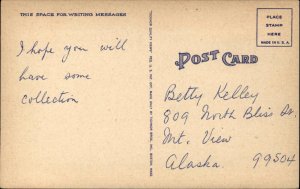 THIS SPACE FOR WRITING MESSAGES
I hope you will
have some
collection
POST CARD
PLACE
STAMP
HERE
MADE IN U.S.A.
Betty Kelley
809 North Bliss Dr.
Mt. View
Alaska 99504